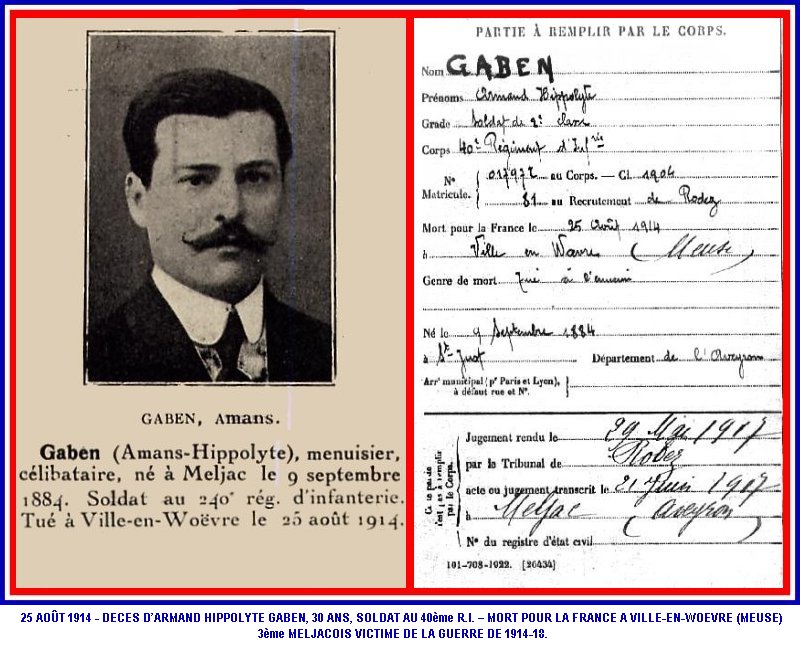 GABEN, Amans.
Gaben (Amans-Hippolyte), menuisier,
célibataire, né à Meljac le 9 septembre
1884. Soldat au 240e rég. d'infanterie.
Tué à Ville-en-Woëvre le 25 août 1914.
PARTIE À REMPLIR PAR LE CORPS.
Nom GABEN
Prénoms Armand Hippolyte
Grade Soldat de 2e classe
Corps 40e Régiment d'Infrie
No 017972 au Corps. — Cl. 1904
Matricule. 81 au Recrutement de Rodez
Mort pour la France le 25 Août 1914
à Ville en Wavre (Meuse)
Genre de mort Tué à l'ennemi
Né le 9 Septembre 1884
à St-Just Département de l'Aveyron
Arrt municipal (pr Paris et Lyon),
à défaut rue et No.
Ce cadre n'est pas à remplir par le Corps.
Jugement rendu le 29 Mai 1917
par le Tribunal de Rodez
acte ou jugement transcrit le 21 Juin 1917
à Meljac (Aveyron)
No du registre d'état civil
101-708-1922. [26434]
25 AOÛT 1914 - DECES D'ARMAND HIPPOLYTE GABEN, 30 ANS, SOLDAT AU 40ème R.I. – MORT POUR LA FRANCE A VILLE-EN-WOEVRE (MEUSE)
3ème MELJACOIS VICTIME DE LA GUERRE DE 1914-18.